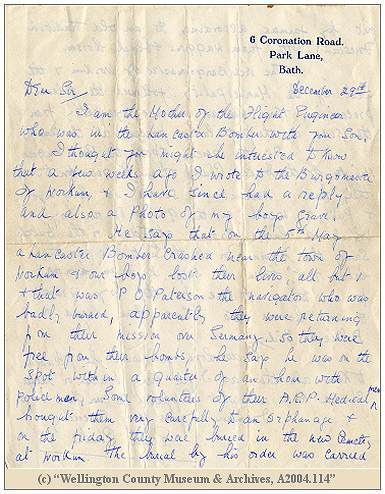 6 Coronation Road.
Park Lane,
Bath.
December 29th
Dear Sir,
I am the Mother of the Flight Engineer
who was in the Lancaster Bomber with your Son.
I thought you might be interested to know
that a few weeks ago I wrote to the Burgomaster
of Workum, & I have since had a reply
and also a Photo of my boys grave.
He says that on the 5th May
a Lancaster Bomber Crashed near the town of
Workum & our boys lost their lives, all but 1
& that was P O Paterson the navigator who was
badly burned, apparently they were returning
from their mission over Germany. So they were
free from their bombs, he says he was on the
spot within a quarter of an hour with
policemen, Some volunteers of their A.R.P. Medical men
bought them very carefully to an orphanage &
on the friday they were buried in the new Cemetery
at Workum The burial by his order was carried
(c) "Wellington County Museum & Archives, A2004.114"